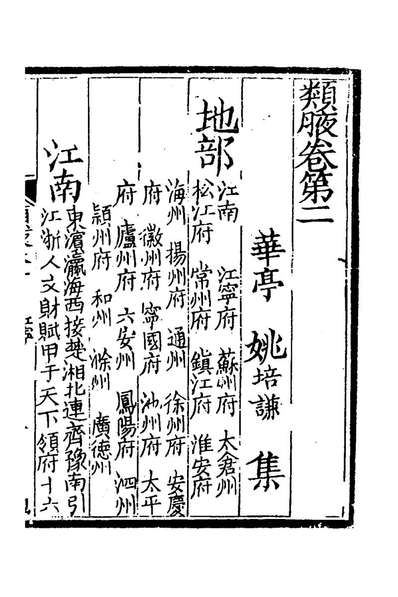 類腋卷第二
華亭　姚培謙　集
地部
江南　江寧府　蘇州府　太倉州
松江府　常州府　鎮江府　淮安府
海州　揚州府　通州　徐州府　安慶
府　徽州府　寧國府　池州府　太平
府　廬州府　六安州　鳳陽府　泗州
潁州府　和州　滁州　廣德州
江南
東濵瀛海西接楚湘北連齊豫南引
江浙人文財賦甲于天下領府十六